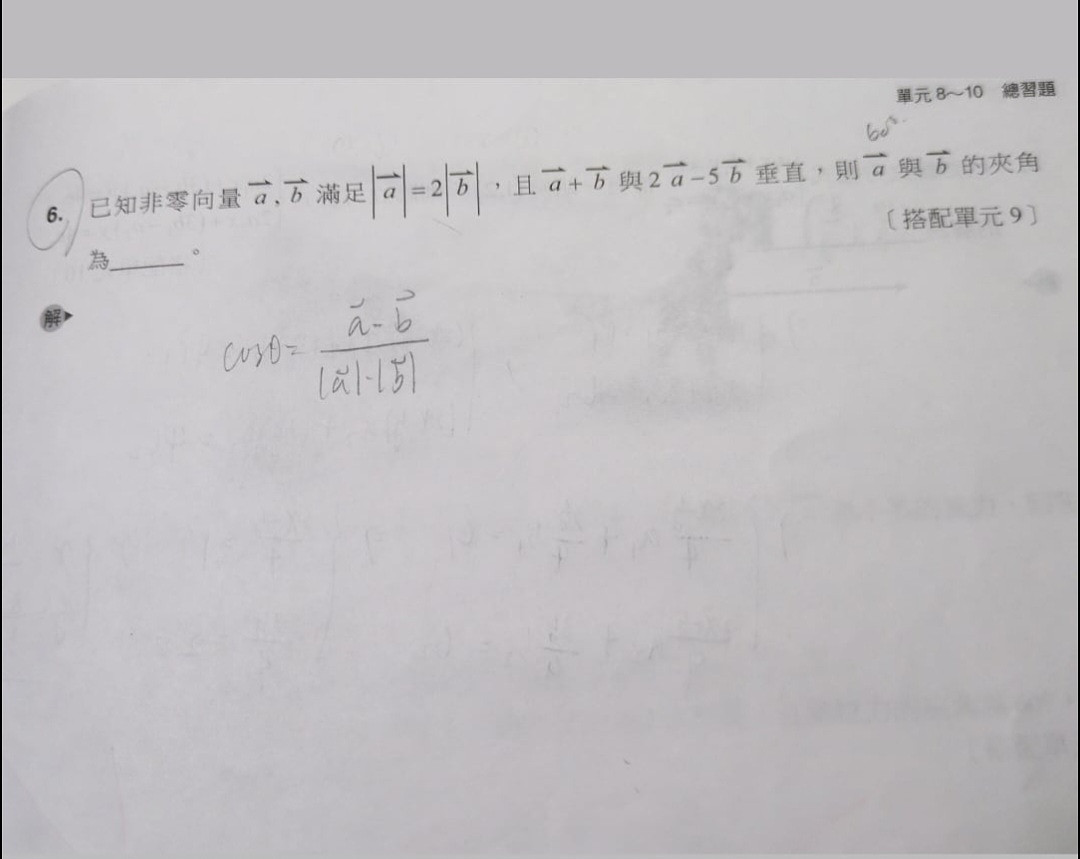 單元 8~10 總習題
60°
6. 已知非零向量 $\overrightarrow{a}$, $\overrightarrow{b}$ 滿足 $|\overrightarrow{a}|=2|\overrightarrow{b}|$，且 $\overrightarrow{a}+\overrightarrow{b}$ 與 $2\overrightarrow{a}-5\overrightarrow{b}$ 垂直，則 $\overrightarrow{a}$ 與 $\overrightarrow{b}$ 的夾角
為______。 〔搭配單元 9〕
解
$\cos\theta=\frac{\vec{a}-\vec{b}}{|\vec{a}|\cdot|\vec{b}|}$